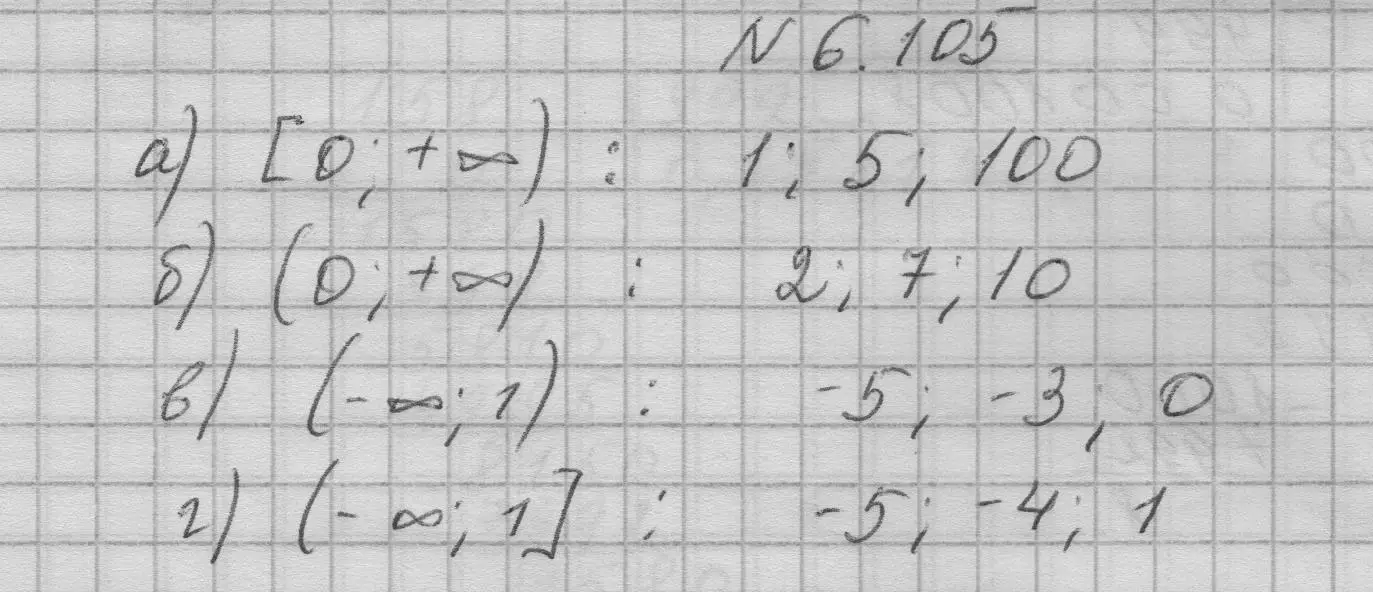 N 6.105
а) [0; +∞) : 1; 5; 100
б) (0; +∞) : 2; 7; 10
в) (-∞; 1) : -5; -3; 0
г) (-∞; 1] : -5; -4; 1